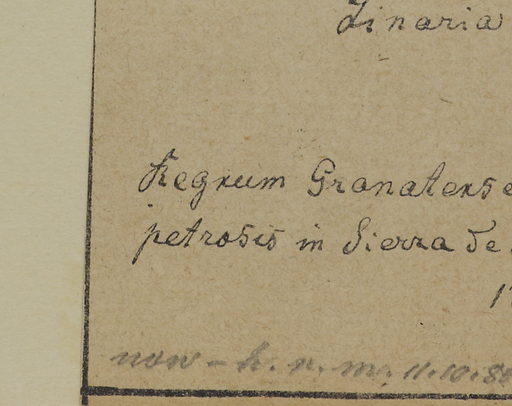 Linaria
Regnum Granatense
petrosis in Sierra de
now – h. n. m. 11.10.88